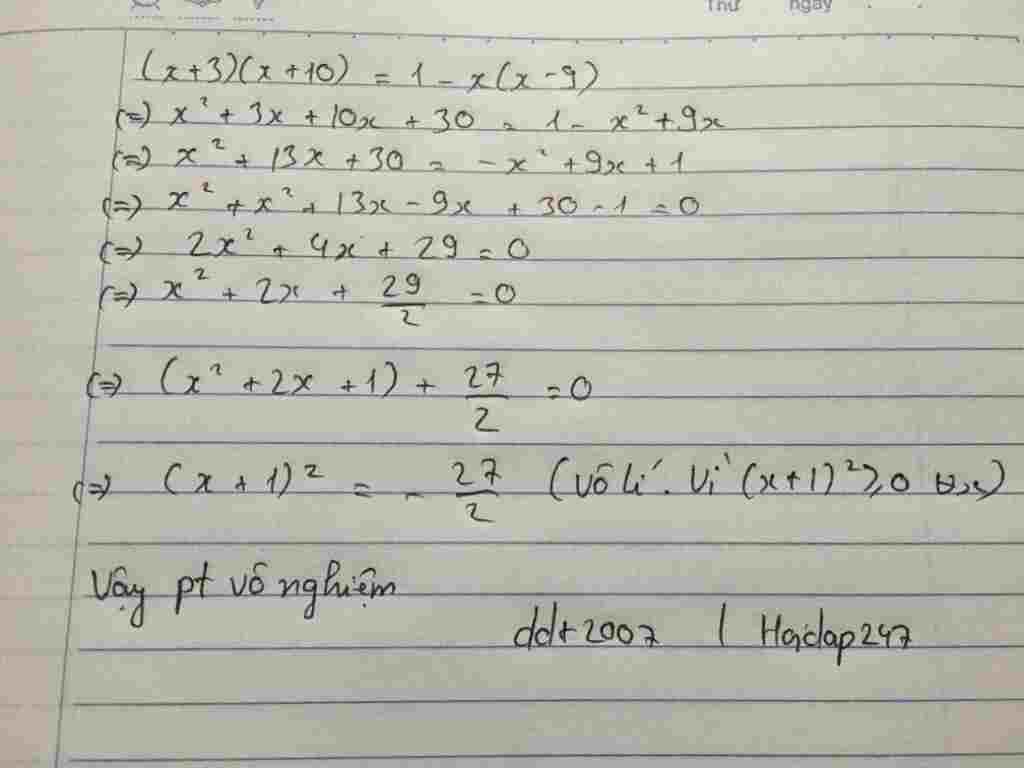 Thứ ngày
(x+3)(x+10) = 1 - x(x-9)
(=) x² + 3x + 10x + 30 = 1 - x² + 9x
(=) x² + 13x + 30 = -x² + 9x + 1
(=) x² + x² + 13x - 9x + 30 - 1 = 0
(=) 2x² + 4x + 29 = 0
(=) x² + 2x + 29/2 = 0
(=) (x² + 2x + 1) + 27/2 = 0
(=) (x + 1)² = - 27/2 (vô lí. Vì (x+1)² ≥ 0 ∀x)
Vậy pt vô nghiệm
ddt2007 | Hoidap247